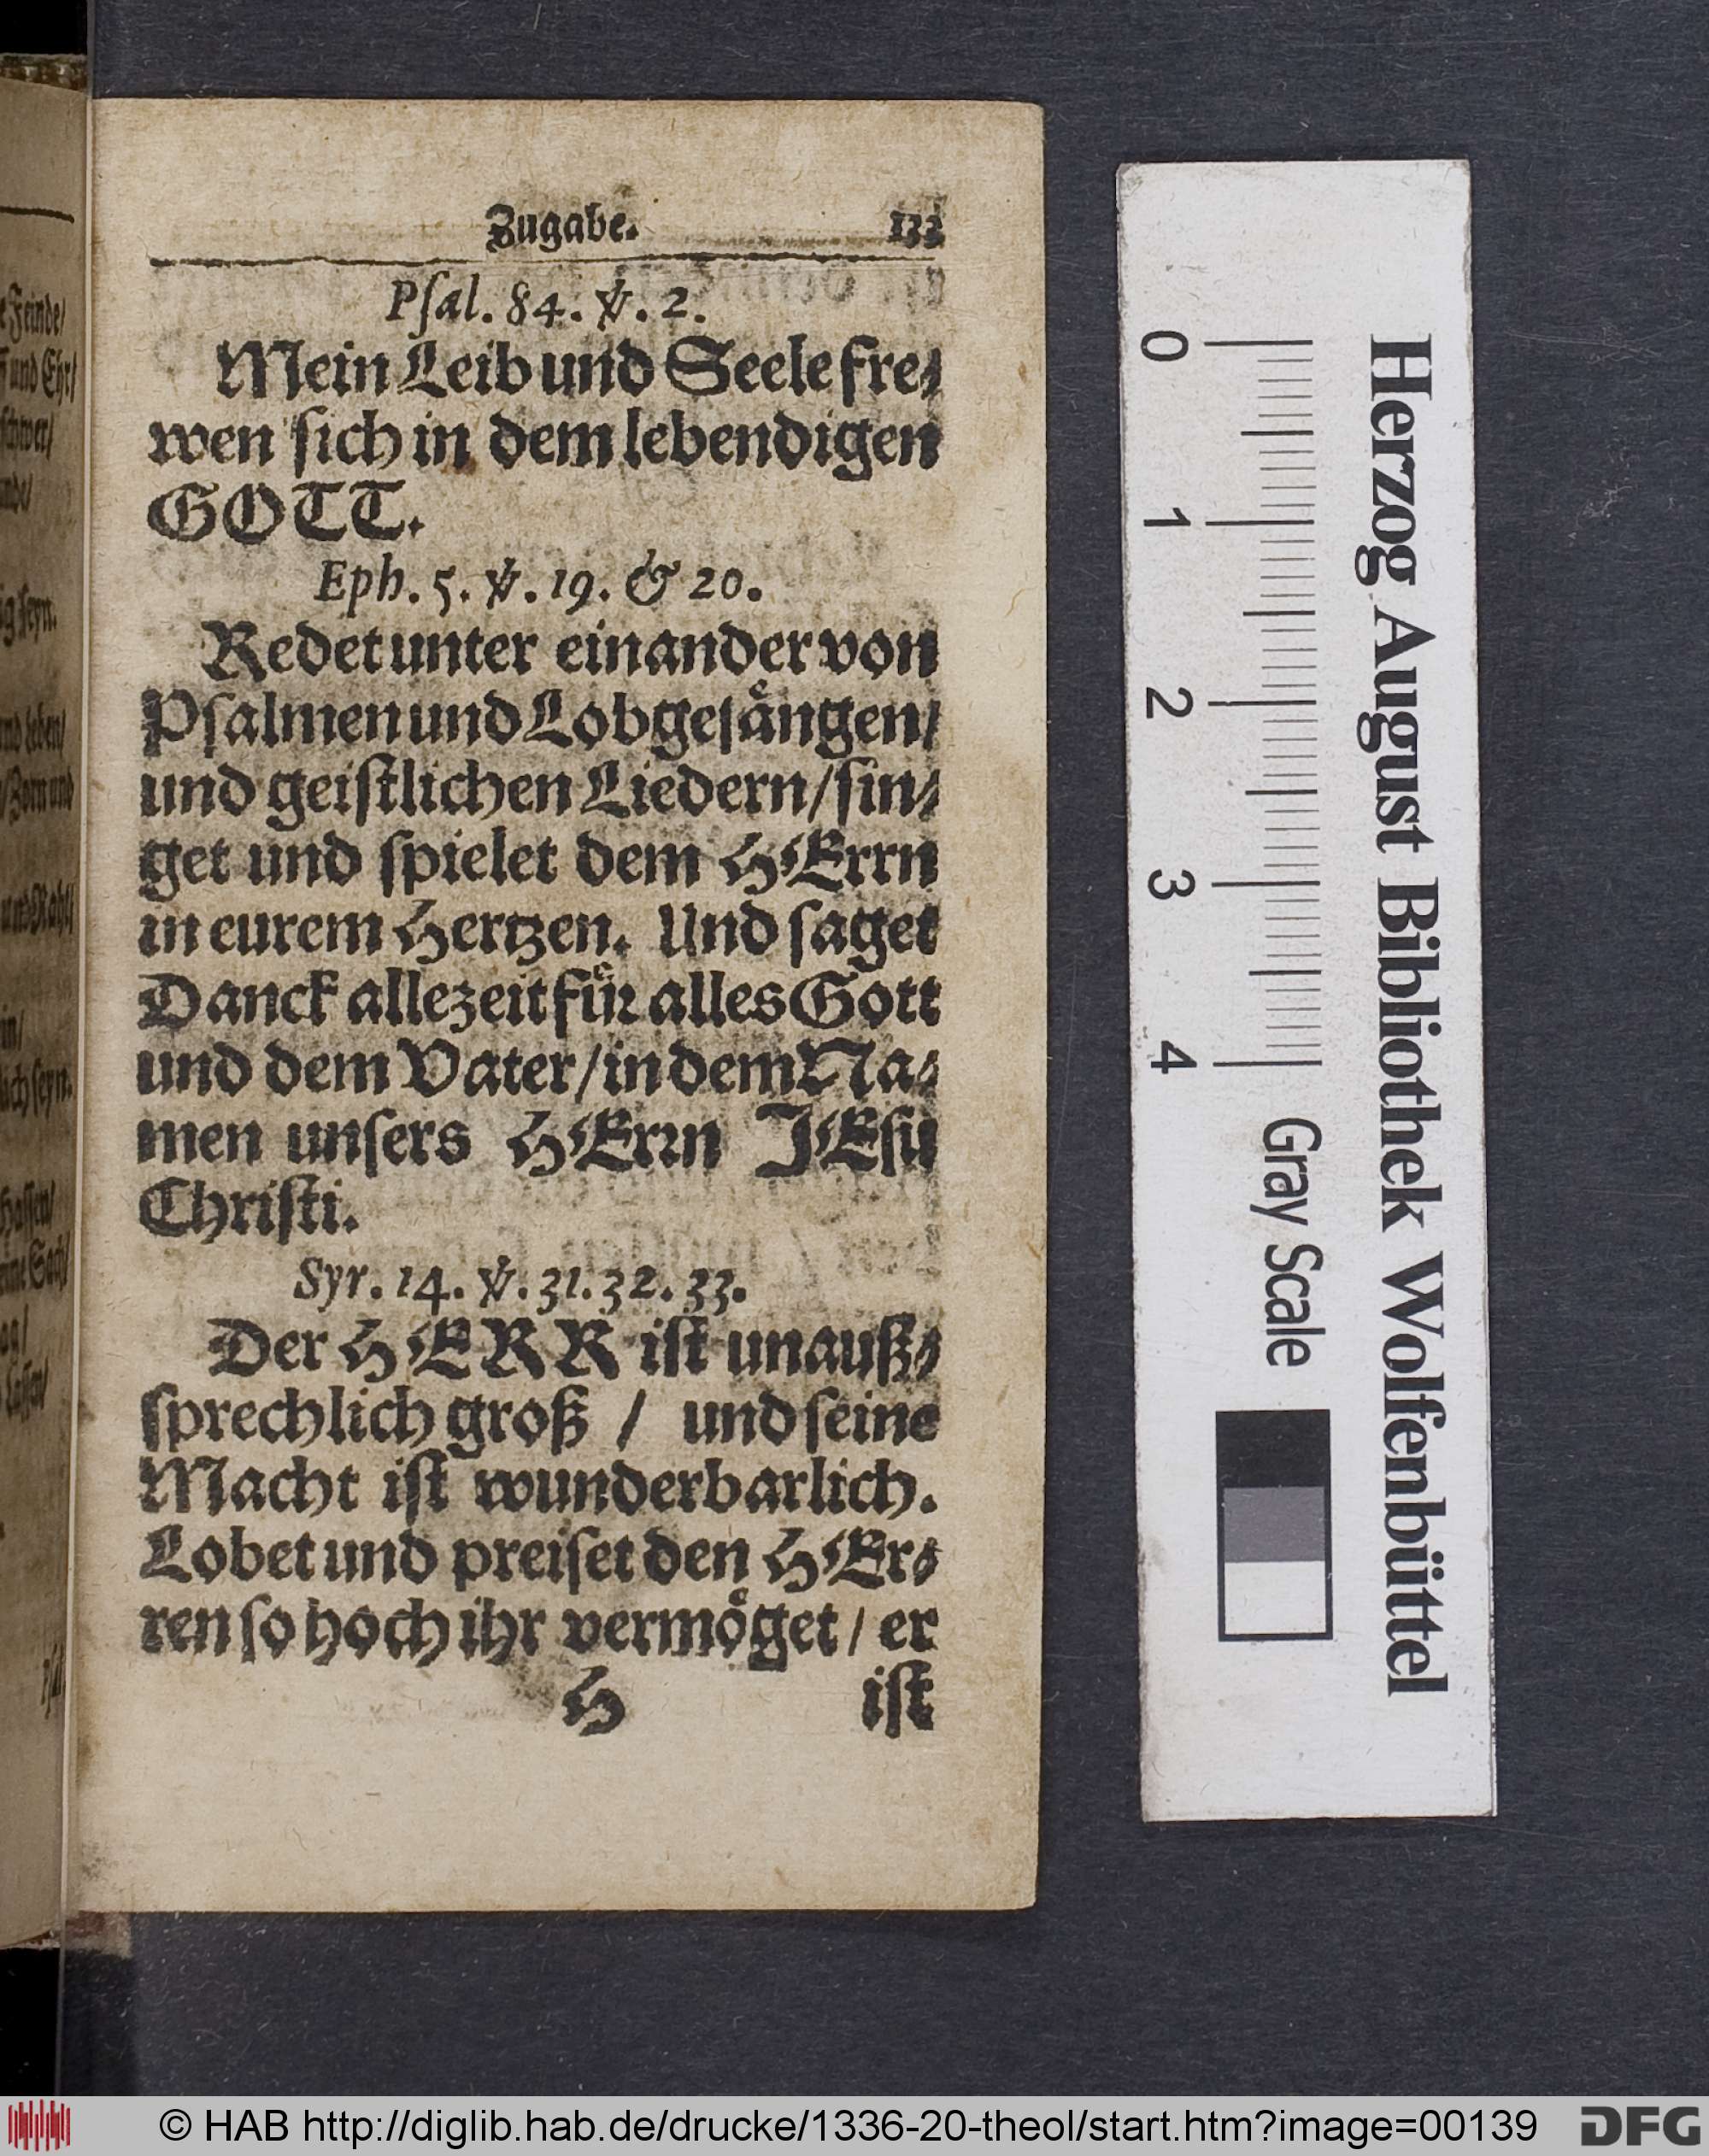 Zugabe. 133
Pſal. 84. ℣. 2.
Mein Leib und Seele fre⸗
wen ſich in dem lebendigen
GOTT.
Eph. 5. ℣. 19. & 20.
Redet unter einander von
Pſalmen und Lobgeſaͤngen/
und geiſtlichen Liedern/ ſin⸗
get und ſpielet dem HErrn
in eurem Hertzen. Und ſaget
Danck allezeit fuͤr alles Gott
und dem Vater/ in dem Na⸗
men unſers HErrn JEſu
Chriſti.
Syr. 14. ℣. 31. 32. 33.
Der HERR iſt unauß⸗
ſprechlich groß / und ſeine
Macht iſt wunderbarlich.
Lobet und preiſet den HEr⸗
ren ſo hoch ihr vermoͤget / er
H iſt
Herzog August Bibliothek Wolfenbüttel
0 1 2 3 4 Gray Scale
© HAB http://diglib.hab.de/drucke/1336-20-theol/start.htm?image=00139
DFG